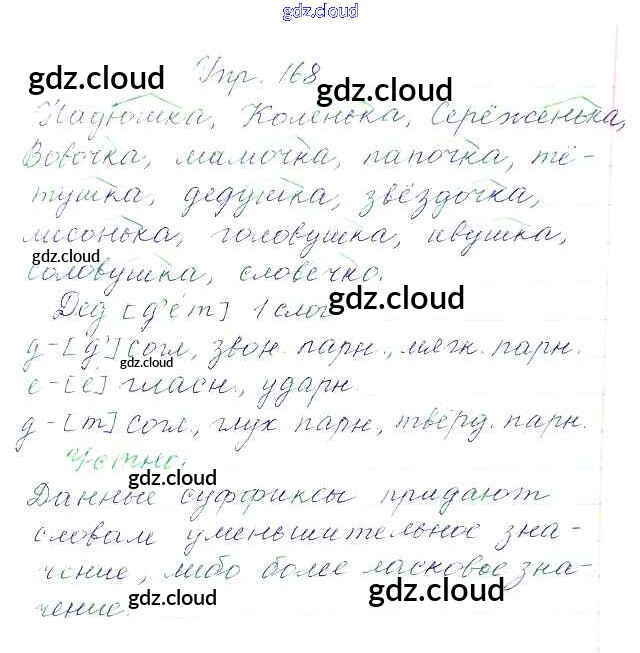 gdz.cloud
Упр. 168
gdz.cloud
gdz.cloud
Надюшка, Коленька, Серёженька,
Вовочка, мамочка, папочка, тё-
тушка, дедушка, звёздочка,
лисонька, головушка, ивушка,
gdz.cloud
соловушка, словечко.
gdz.cloud
Дед [д'е́т] 1 слог
д - [д'] согл., звон. парн., мягк. парн.
gdz.cloud
е - [е́] гласн., ударн.
д - [т] согл., глух парн., твёрд. парн.
Устно:
gdz.cloud
Данные суффиксы придают
словам уменьшительное зна-
чение, либо более ласковое зна-
чение.
gdz.cloud
gdz.cloud